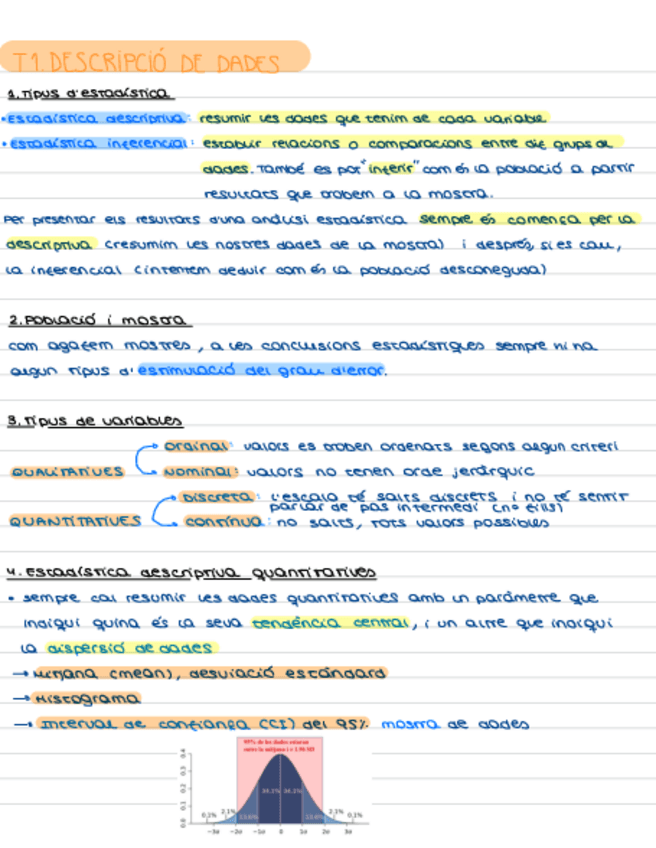 T1. DESCRIPCIÓ DE DADES
1. Tipus d'estadística
• Estadística descriptiva: resumir les dades que tenim de cada variable
• Estadística inferencial: establir relacions o comparacions entre dif grups de
dades. També es pot "inferir" com és la població a partir
resultats que trobem a la mostra.
Per presentar els resultats d'una anàlisi estadística sempre és comença per la
descriptiva (resumim les nostres dades de la mostra) i després, si es cau,
la inferencial (intentem deduir com és la població desconeguda)
2. Població i mostra
com agafem mostres, a les conclusions estadístiques sempre hi ha
algun tipus d'estimulació del grau d'error.
3. Tipus de variables
Ordinal: valors es troben ordenats segons algun criteri
QUALITATIVES
Nominal: valors no tenen orde jeràrquic
Discreta: l'escala té salts discrets i no té sentir
parlar de pas intermedi (nº fills)
QUANTITATIVES
contínua: no salts, tots valors possibles
4. Estadística descriptiva quantitatives
• sempre cal resumir les dades quantitatives amb un paràmetre que
indiqui quina és la seva tendència central, i un altre que indiqui
la dispersió de dades
→ Mitjana (mean), desviació estàndard
→ Histograma
→ Interval de confiança (CI) del 95% mostra de dades
95% de les dades estaran
entre la mitjana i ± 1.96 SD
0.0 0.1 0.2 0.3 0.4
0.1% 2.1% 13.6% 34.1% 34.1% 13.6% 2.1% 0.1%
−3σ −2σ −1σ 0 1σ 2σ 3σ